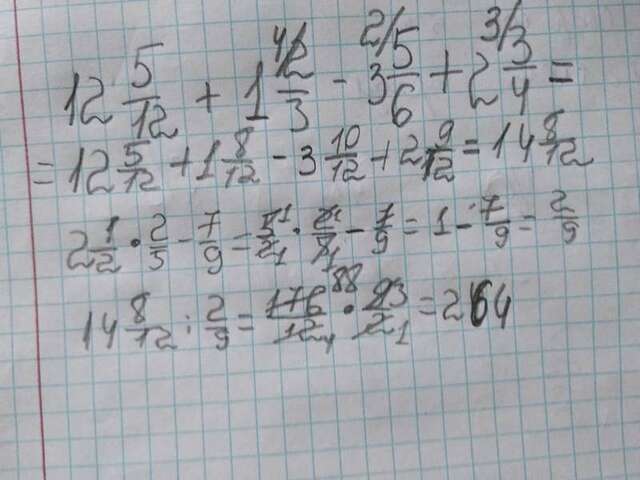 12 5/12 + 1 4\2/3 - 3 2\5/6 + 2 3\3/4 =
= 12 5/12 + 1 8/12 - 3 10/12 + 2 9/12 = 14 8/12
2 1/2 · 2/5 - 7/9 = 5/2 · 2/5 - 7/9 = 1 - 7/9 = 2/9
14 8/12 : 2/9 = 176/12 · 9/2 = 264